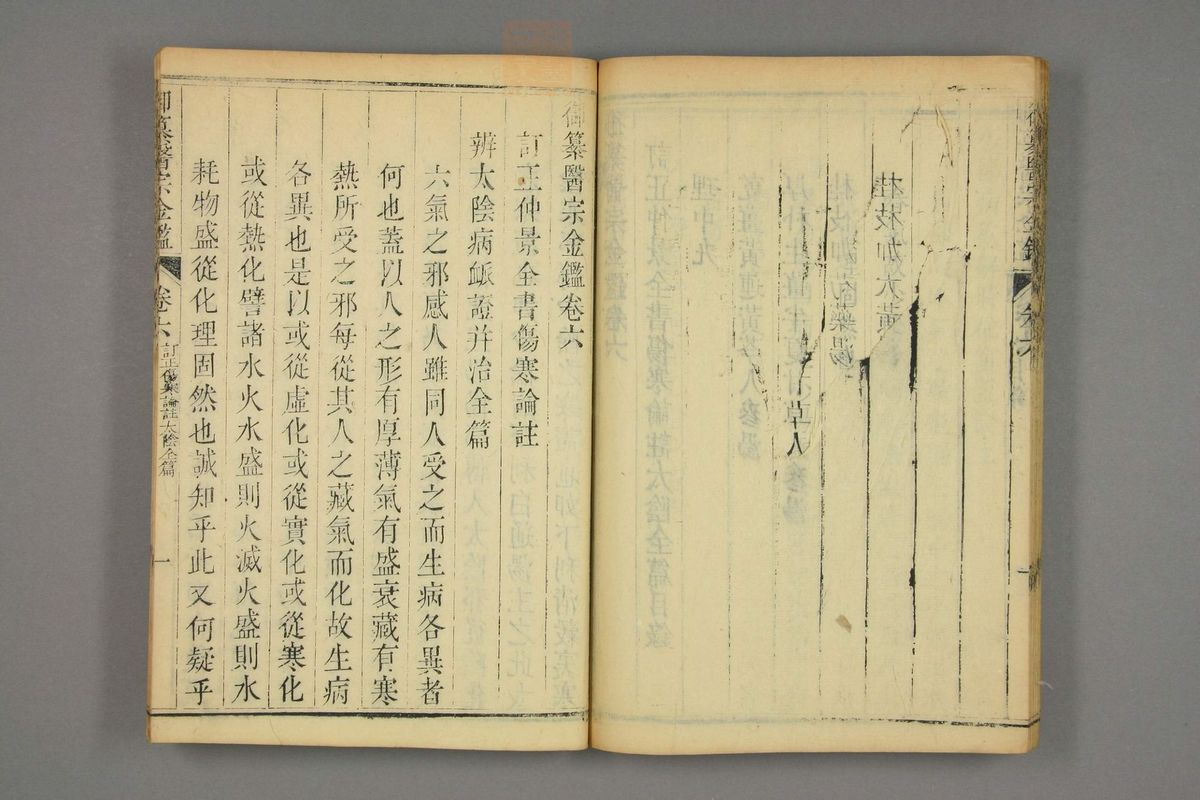 桂枝加大黃
御纂醫宗金鑑
卷六
御纂醫宗金鑑卷六
訂正仲景全書傷寒論註
辨太陰病脈證并治全篇
六氣之邪感人雖同人受之而生病各異者
何也蓋以人之形有厚薄氣有盛衰藏有寒
熱所受之邪每從其人之藏氣而化故生病
各異也是以或從虛化或從實化或從寒化
或從熱化譬諸水火水盛則火滅火盛則水
耗物盛從化理固然也誠知乎此又何疑乎
御纂醫宗金鑑
卷六
訂正傷寒論註太陰全篇
一